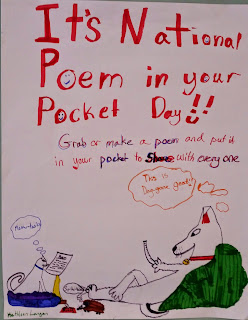 It's National
Poem in your
Pocket Day!!
Grab or make a poem and put it
in your pocket to Share with every one
This is
Dog-gone good!